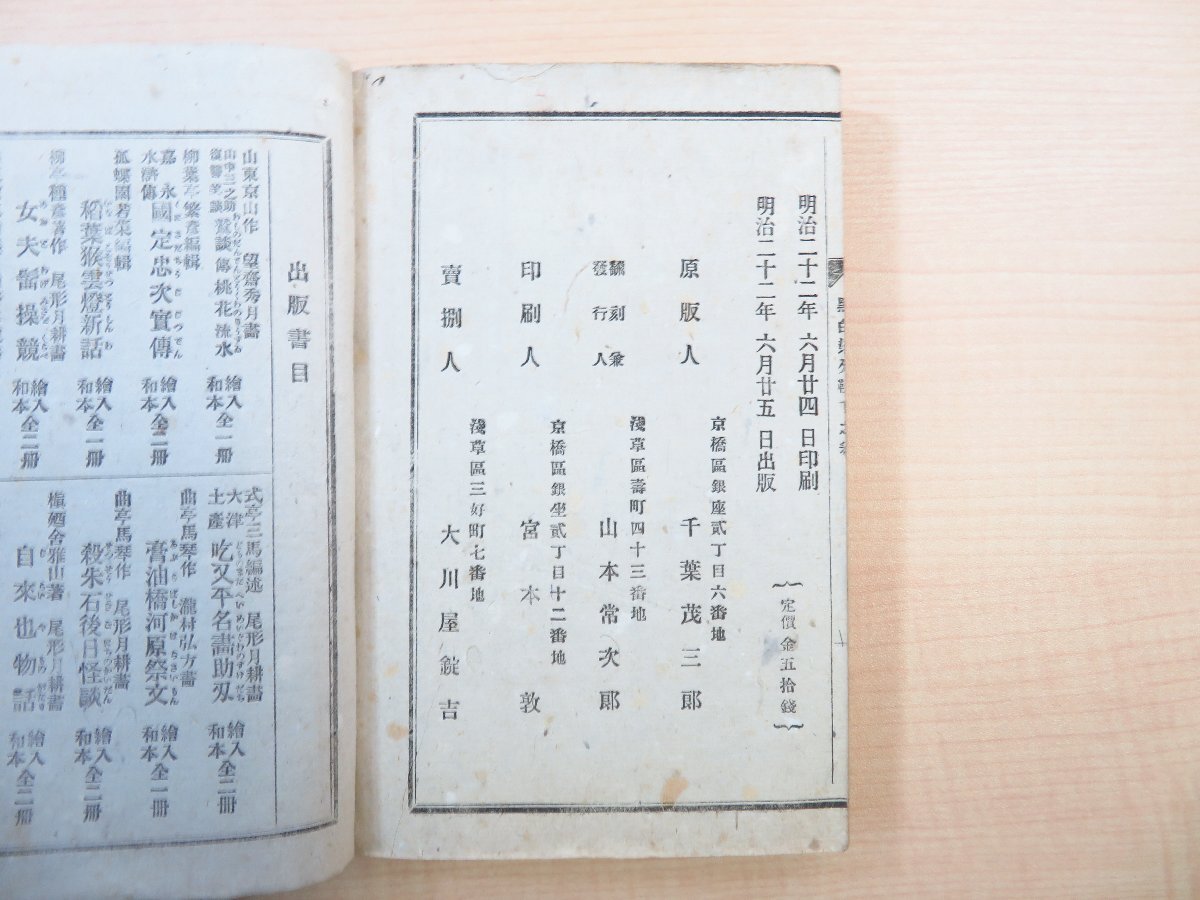 明治二十二年六月廿四日印刷
明治二十二年六月廿五日出版
定價金五拾錢
原版人
京橋區銀座貳丁目六番地
千葉茂三郎
飜刻兼
發行人
淺草區壽町四十三番地
山本常次郎
印刷人
京橋區銀坐貳丁目十二番地
宮本敦
賣捌人
淺草區三好町七番地
大川屋錠吉
出版書目
山東京山作 望齋秀月畫
山中三之助
復讐羊談
鶯談傳桃花流水
繪入
和本
全一冊
柳葉亭繁彦編輯
嘉永
水滸傳
國定忠次實傳
繪入
和本
全二冊
孤蝶園若菜編輯
稻葉猴雲燈新話
繪入
和本
全一冊
柳亭種彦著作 尾形月耕畫
女夫髷操競
繪入
和本
全二冊
式亭三馬編述 尾形月耕畫
大津
土產
吃又平名畫助刃
繪入
和本
全二冊
曲亭馬琴作 瀧村弘方畫
膏油橋河原祭文
繪入
和本
全一冊
曲亭馬琴作 尾形月耕畫
殺朱石後日怪談
繪入
和本
全二冊
雅山著 尾形月耕畫
自來也物話
繪入
和本
全二冊